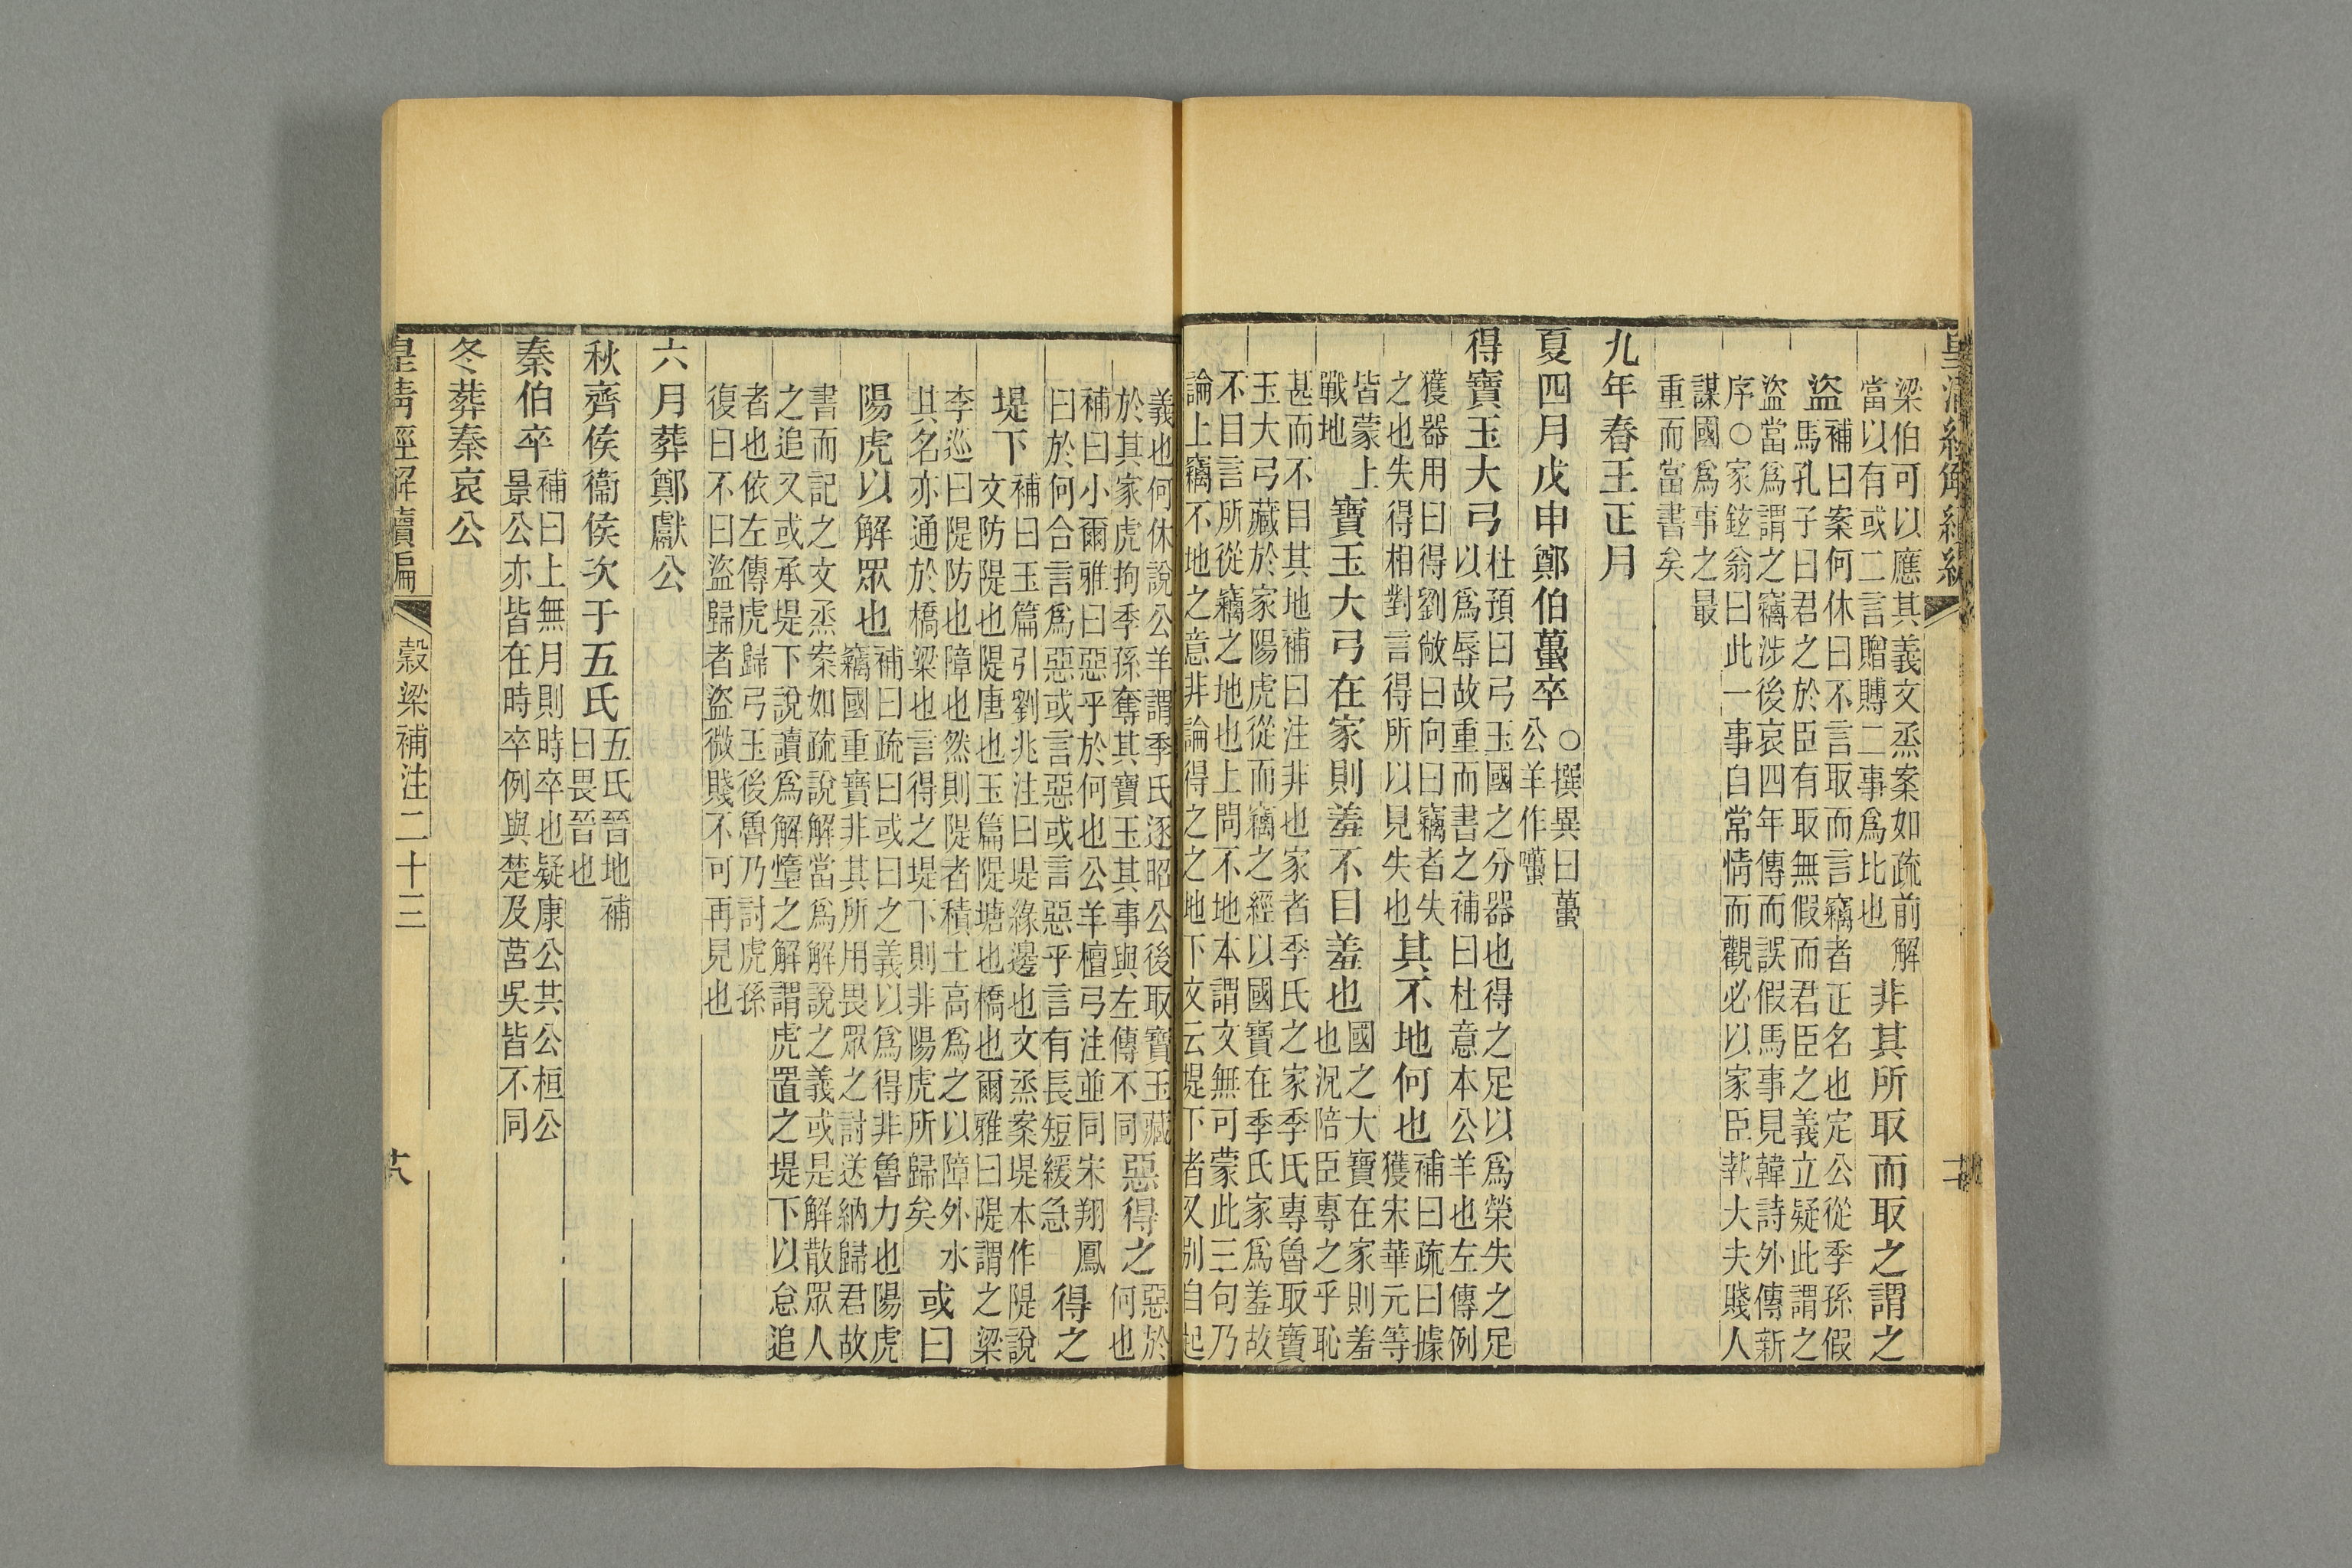 梁伯可以應其義文烝案如疏前解
當以有或二言贈賻二事爲比也
非其所取而取之謂之
盜
補曰案何休曰不言取而言竊者正名也定公從季孫假
馬孔子曰君之於臣有取無假而君臣之義立疑此謂之
盜當爲謂之竊涉後哀四年傳而誤假馬事見韓詩外傳新
序○家鉉翁曰此一事自常情而觀必以家臣執大夫賤人
謀國爲事之最
重而當書矣
九年春王正月
夏四月戊申鄭伯蠆卒
○撰異曰蠆
公羊作囆
得寶玉大弓
杜預曰弓玉國之分器也得之足以爲榮失之足
以爲辱故重而書之補曰杜意本公羊也左傳例
獲器用曰得劉敞曰向曰竊者失
之也失得相對言得所以見失也
其不地何也
補曰疏曰據
獲宋華元等
皆蒙上
戰地
寶玉大弓在家則羞不目羞也
國之大寶在家則羞
也況陪臣專之乎恥
甚而不目其地補曰注非也家者季氏之家季氏專魯取寶
玉大弓藏於家陽虎從而竊之經以國寶在季氏家爲羞故
不目言所從竊之地也上問不地本謂文無可蒙此三句乃
論上竊不地之意非論得之之地下文云堤下者又別自起
義也何休說公羊謂季氏逐昭公後取寶玉藏
於其家虎拘季孫奪其寶玉其事與左傳不同
惡得之
惡於
何也
補曰小爾雅曰惡乎於何也公羊檀弓注並同宋翔鳳
曰於何合言爲惡或言惡或言惡乎言有長短緩急
得之
堤下
補曰玉篇引劉兆注曰堤緣邊也文烝案堤本作隄說
文防隄也隄唐也玉篇隄塘也橋也爾雅曰隄謂之梁
李巡曰隄防也障也然則隄者積土高爲之以障外水
其名亦通於橋梁也言得之堤下則非陽虎所歸矣
或曰
陽虎以解眾也
補曰疏曰或曰之義以爲得非魯力也陽虎
竊國重寶非其所用畏眾之討送納歸君故
書而記之文烝案如疏說解當爲解說之義或是解散眾人
之追又或承堤下說讀爲解墮之解謂虎置之堤下以怠追
者也依左傳虎歸弓玉後魯乃討虎孫
復曰不曰盜歸者盜微賤不可再見也
六月葬鄭獻公
秋齊侯衞侯次于五氏
五氏晉地補
曰畏晉也
秦伯卒
補曰上無月則時卒也疑康公共公桓公
景公亦皆在時卒例與楚及莒吳皆不同
冬葬秦哀公
皇清經解續編
穀梁補注二十三